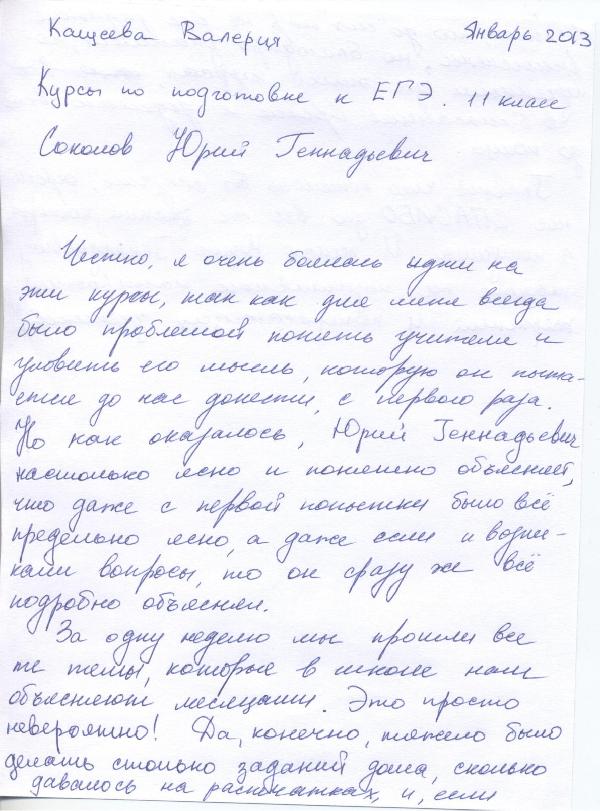 Кащеева Валерия Январь 2013
Курсы по подготовке к ЕГЭ. 11 класс
Соколов Юрий Геннадьевич
Честно, я очень боялась идти на
эти курсы, так как для меня всегда
было проблемой понять учителя и
уловить его мысль, которую он пыта-
ется до нас донести, с первого раза.
Но как оказалось, Юрий Геннадьевич
настолько ясно и понятно объясняет,
что даже с первой попытки было всё
предельно ясно, а даже если и возни-
кали вопросы, то он сразу же всё
подробно объяснял.
За одну неделю мы прошли все
те темы, которые в школе нам
объясняют месяцами. Это просто
невероятно! Да, конечно, тяжело было
делать столько заданий дома, сколько
давалось на распечатках, и, если